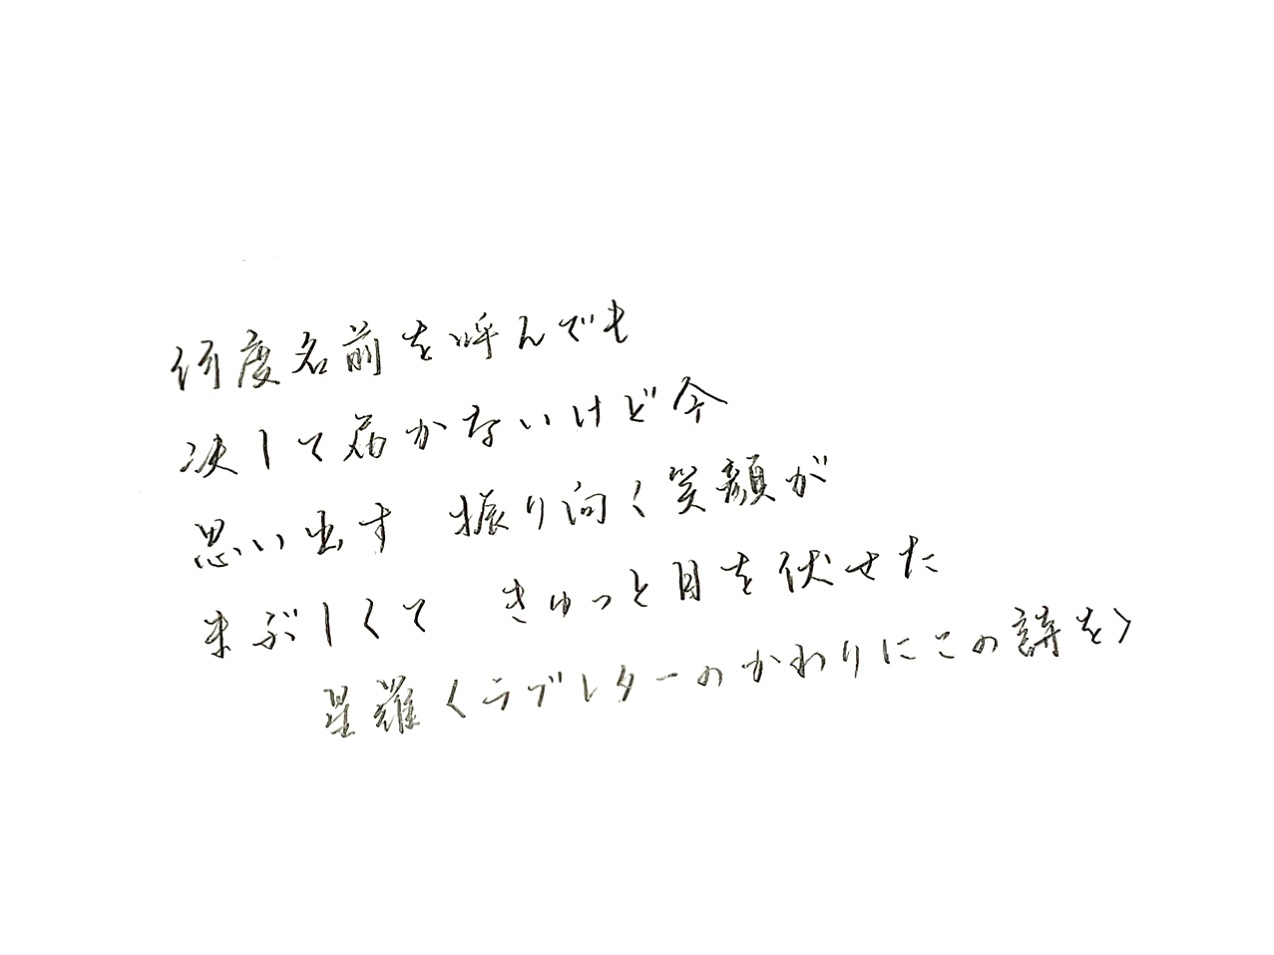 何度名前を呼んでも
決して届かないけど今
思い出す 振り向く笑顔が
まぶしくて きゅっと目を伏せた
星羅〈ラブレターのかわりにこの詩を〉